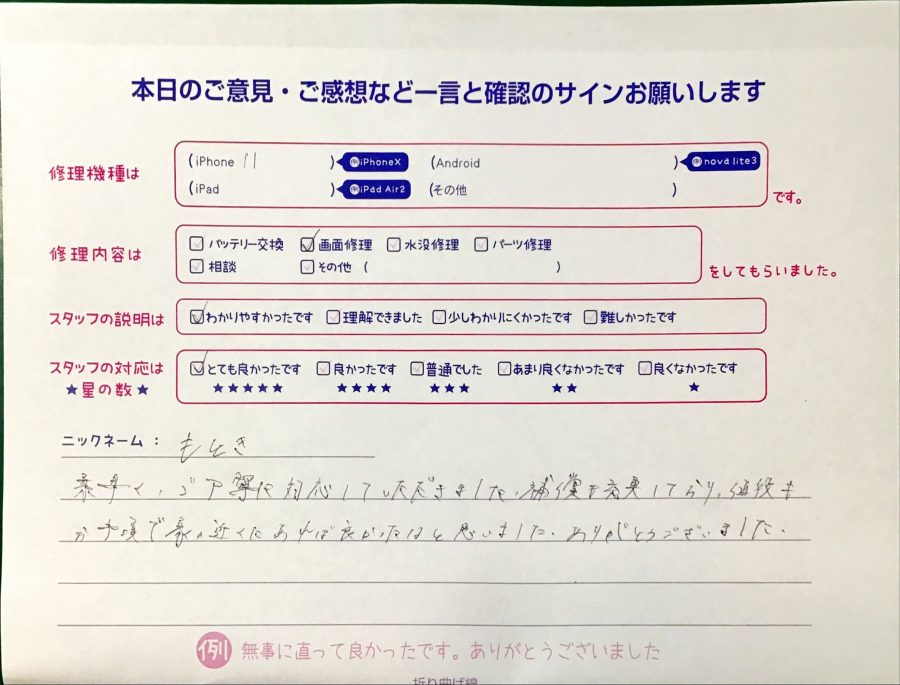 本日のご意見・ご感想など一言と確認のサインお願いします
修理機種は
(iPhone 11 ) 例iPhoneX (Android ) 例nova lite3
(iPad ) 例iPad Air2 (その他 )
です。
修理内容は
バッテリー交換 画面修理 水没修理 パーツ修理
相談 その他 ( )
をしてもらいました。
スタッフの説明は
わかりやすかったです 理解できました 少しわかりにくかったです 難しかったです
スタッフの対応は
★星の数★
とても良かったです 良かったです 普通でした あまり良くなかったです 良くなかったです
★★★★★ ★★★★ ★★★ ★★ ★
ニックネーム: もとき
素早く、ご丁寧に対応していただきました。補償も充実しており、値段も
お手頃で家の近くにあれば良かったなと思いました。ありがとうございました。
例 無事に直って良かったです。ありがとうございました
折り曲げ線